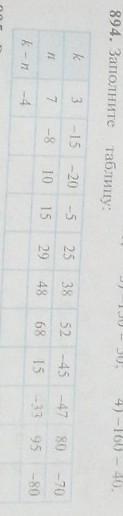 4) –160 – 40.
894. Заполните таблицу:
k 3 –15 –20 –5 25 38 52 –45 –47 80 –70
n 7 –8 10 15 29 48 68 15 –33 95 –80
k – n –4